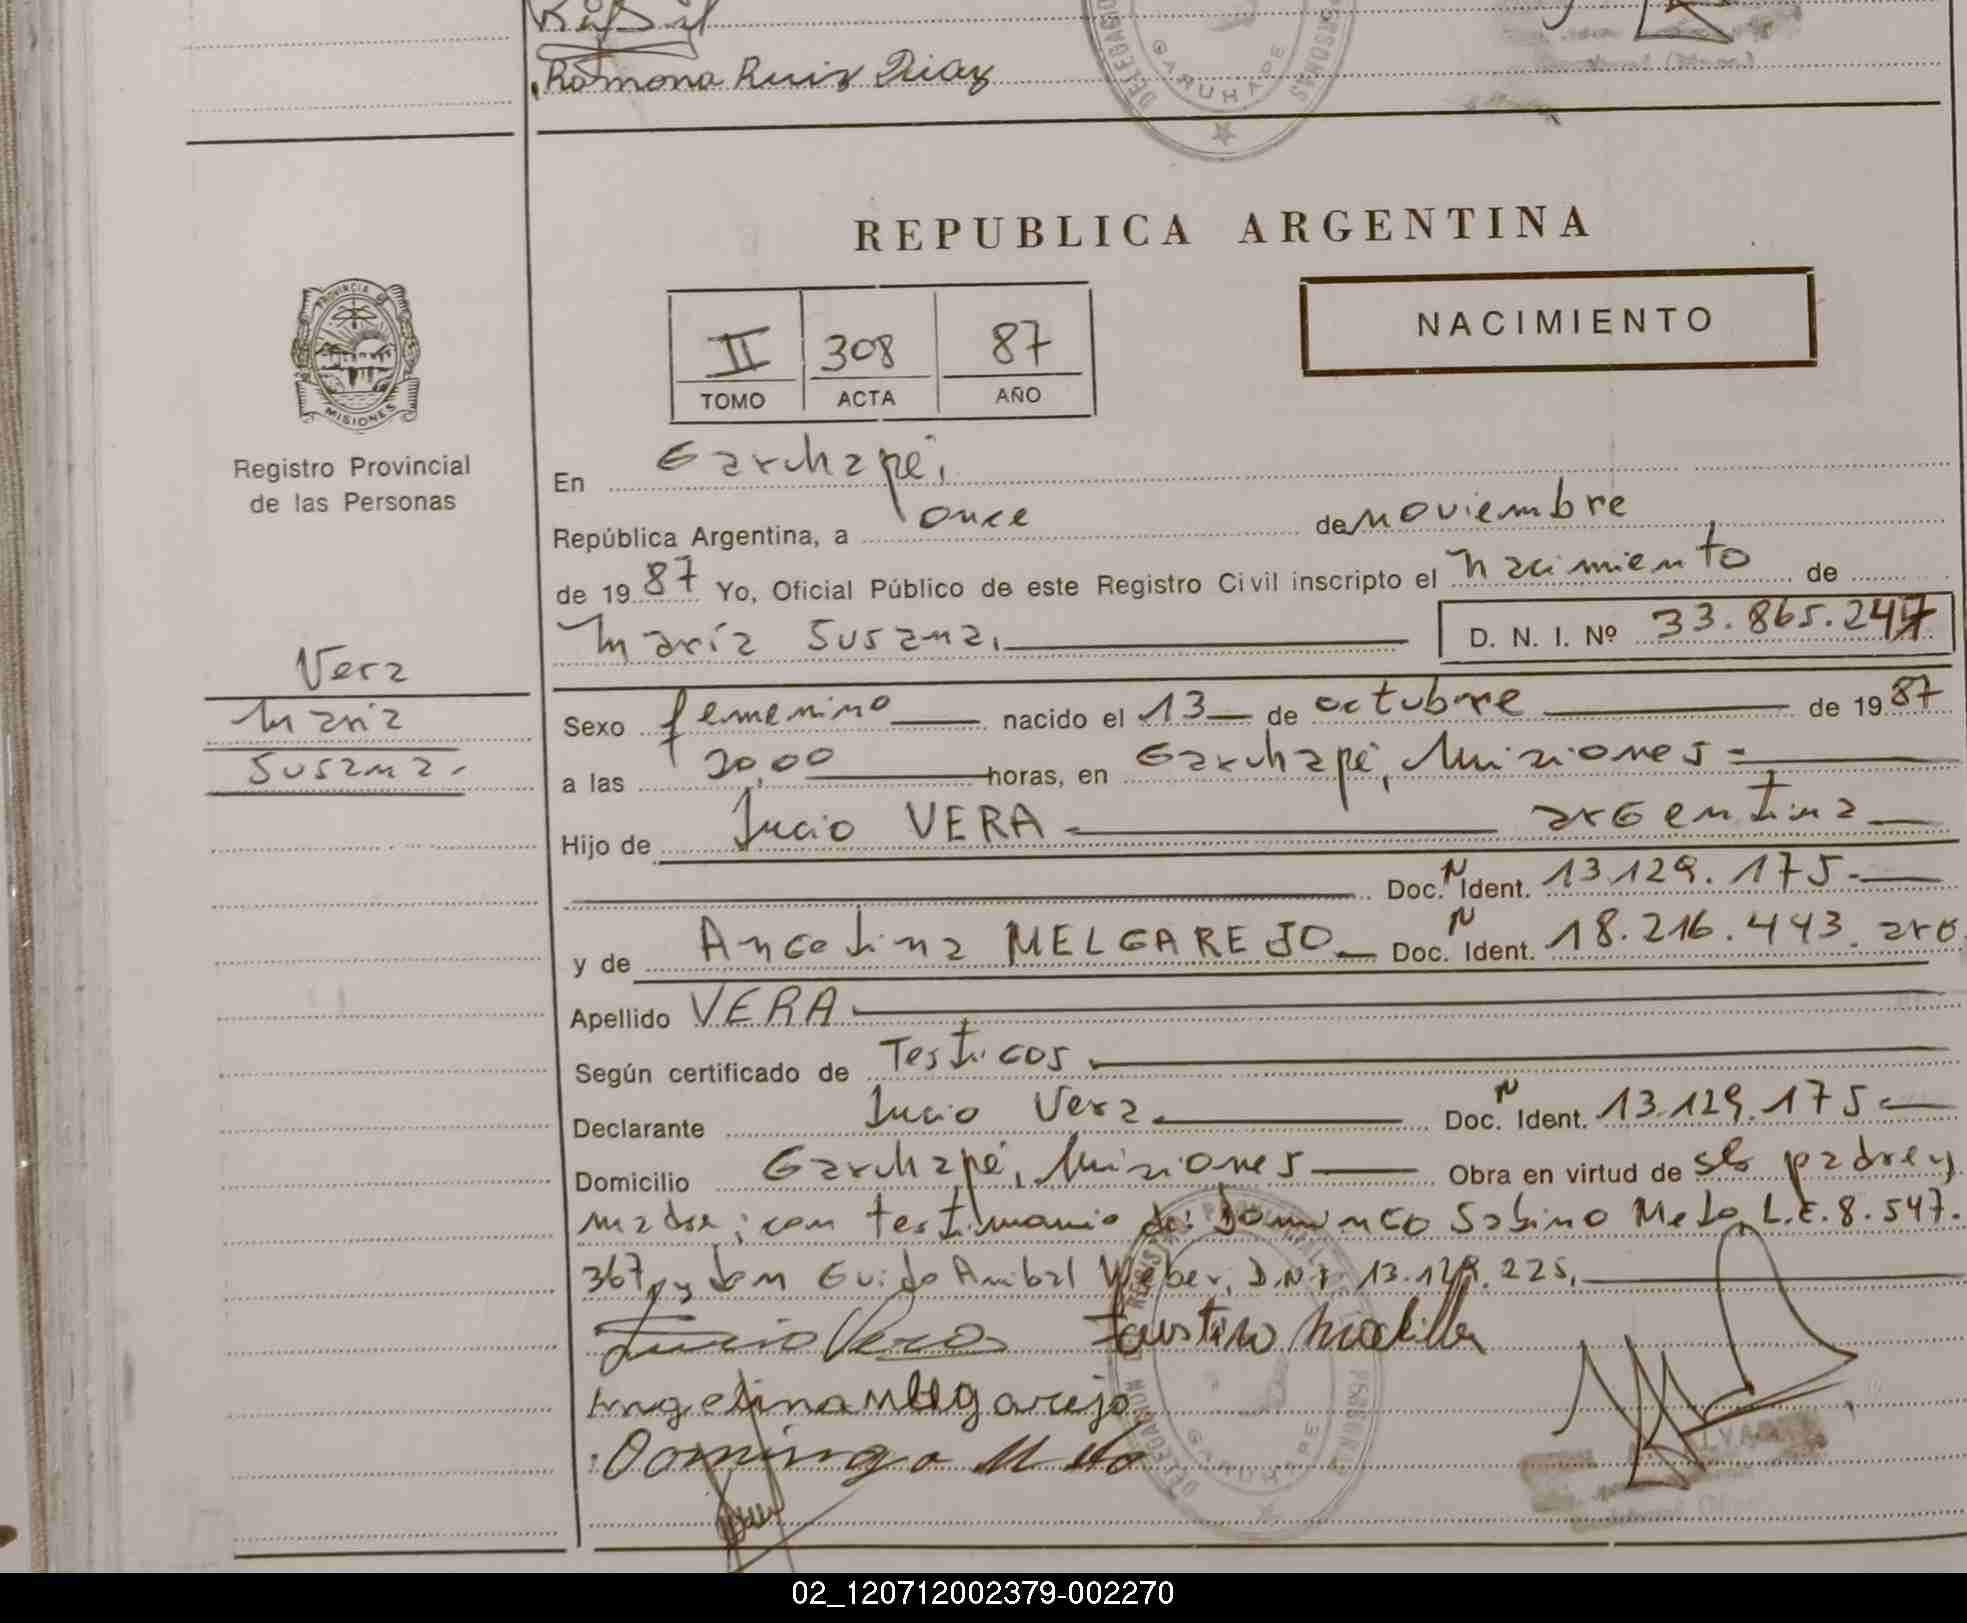 Ramona Ruiz Diaz
GARUHAPE
REPUBLICA ARGENTINA
PROVINCIA DE
MISIONES
Registro Provincial
de las Personas
II 308 87
TOMO ACTA AÑO
NACIMIENTO
En Garuhapé,
República Argentina, a once de noviembre
de 1987 Yo, Oficial Público de este Registro Civil inscripto el nacimiento de
María Susana, D. N. I. Nº 33.865.247
Vera
María
Susana.
Sexo femenino nacido el 13 de octubre de 1987
a las 20,00 horas, en Garuhapé, Misiones =
Hijo de Lucio VERA argentina
Doc. N Ident. 13.129.175.-
y de Angelina MELGAREJO Doc. N Ident. 18.216.443. arg.
Apellido VERA
Según certificado de Testigos
Declarante Lucio Vera. Doc. N Ident. 13.129.175
Domicilio Garuhapé, Misiones Obra en virtud de ser padre y
madre; con testimonio de: Domingo Sabino Melo, L.E. 8.547.
367, y don Guido Anibal Weber, D.N.I. 13.129.225,
Lucio Vera Faustino
Angelina Melgarejo
Domingo Melo
GARUHAPE
02_120712002379-002270